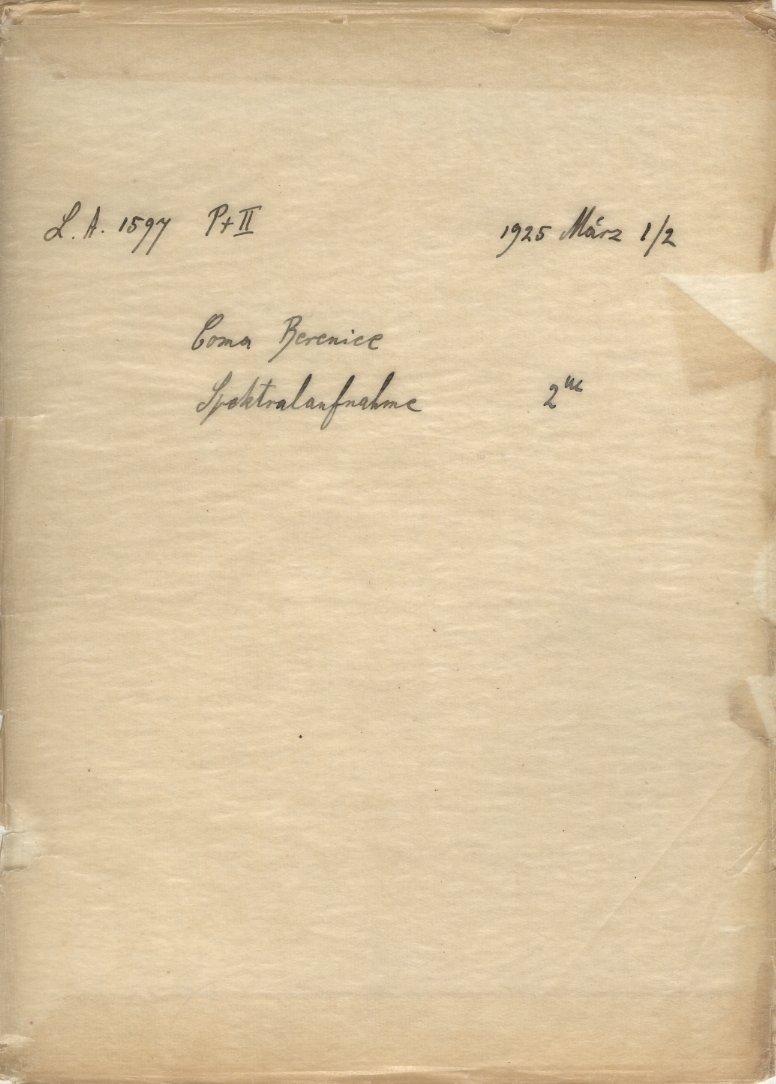 L. A. 1597 Pt II 1925 März 1/2
Coma Berenice
Spektralaufnahme 2ᵐ